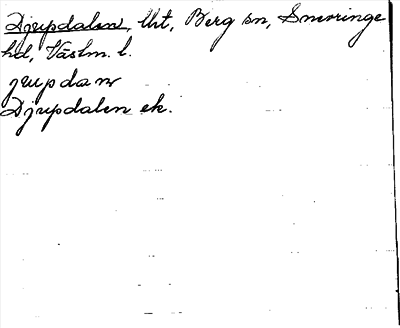 Djupdalen, Urt, Berg sn, Snevringe
hd, Västm. l.
jupdaɴ
Djupdalen ek.